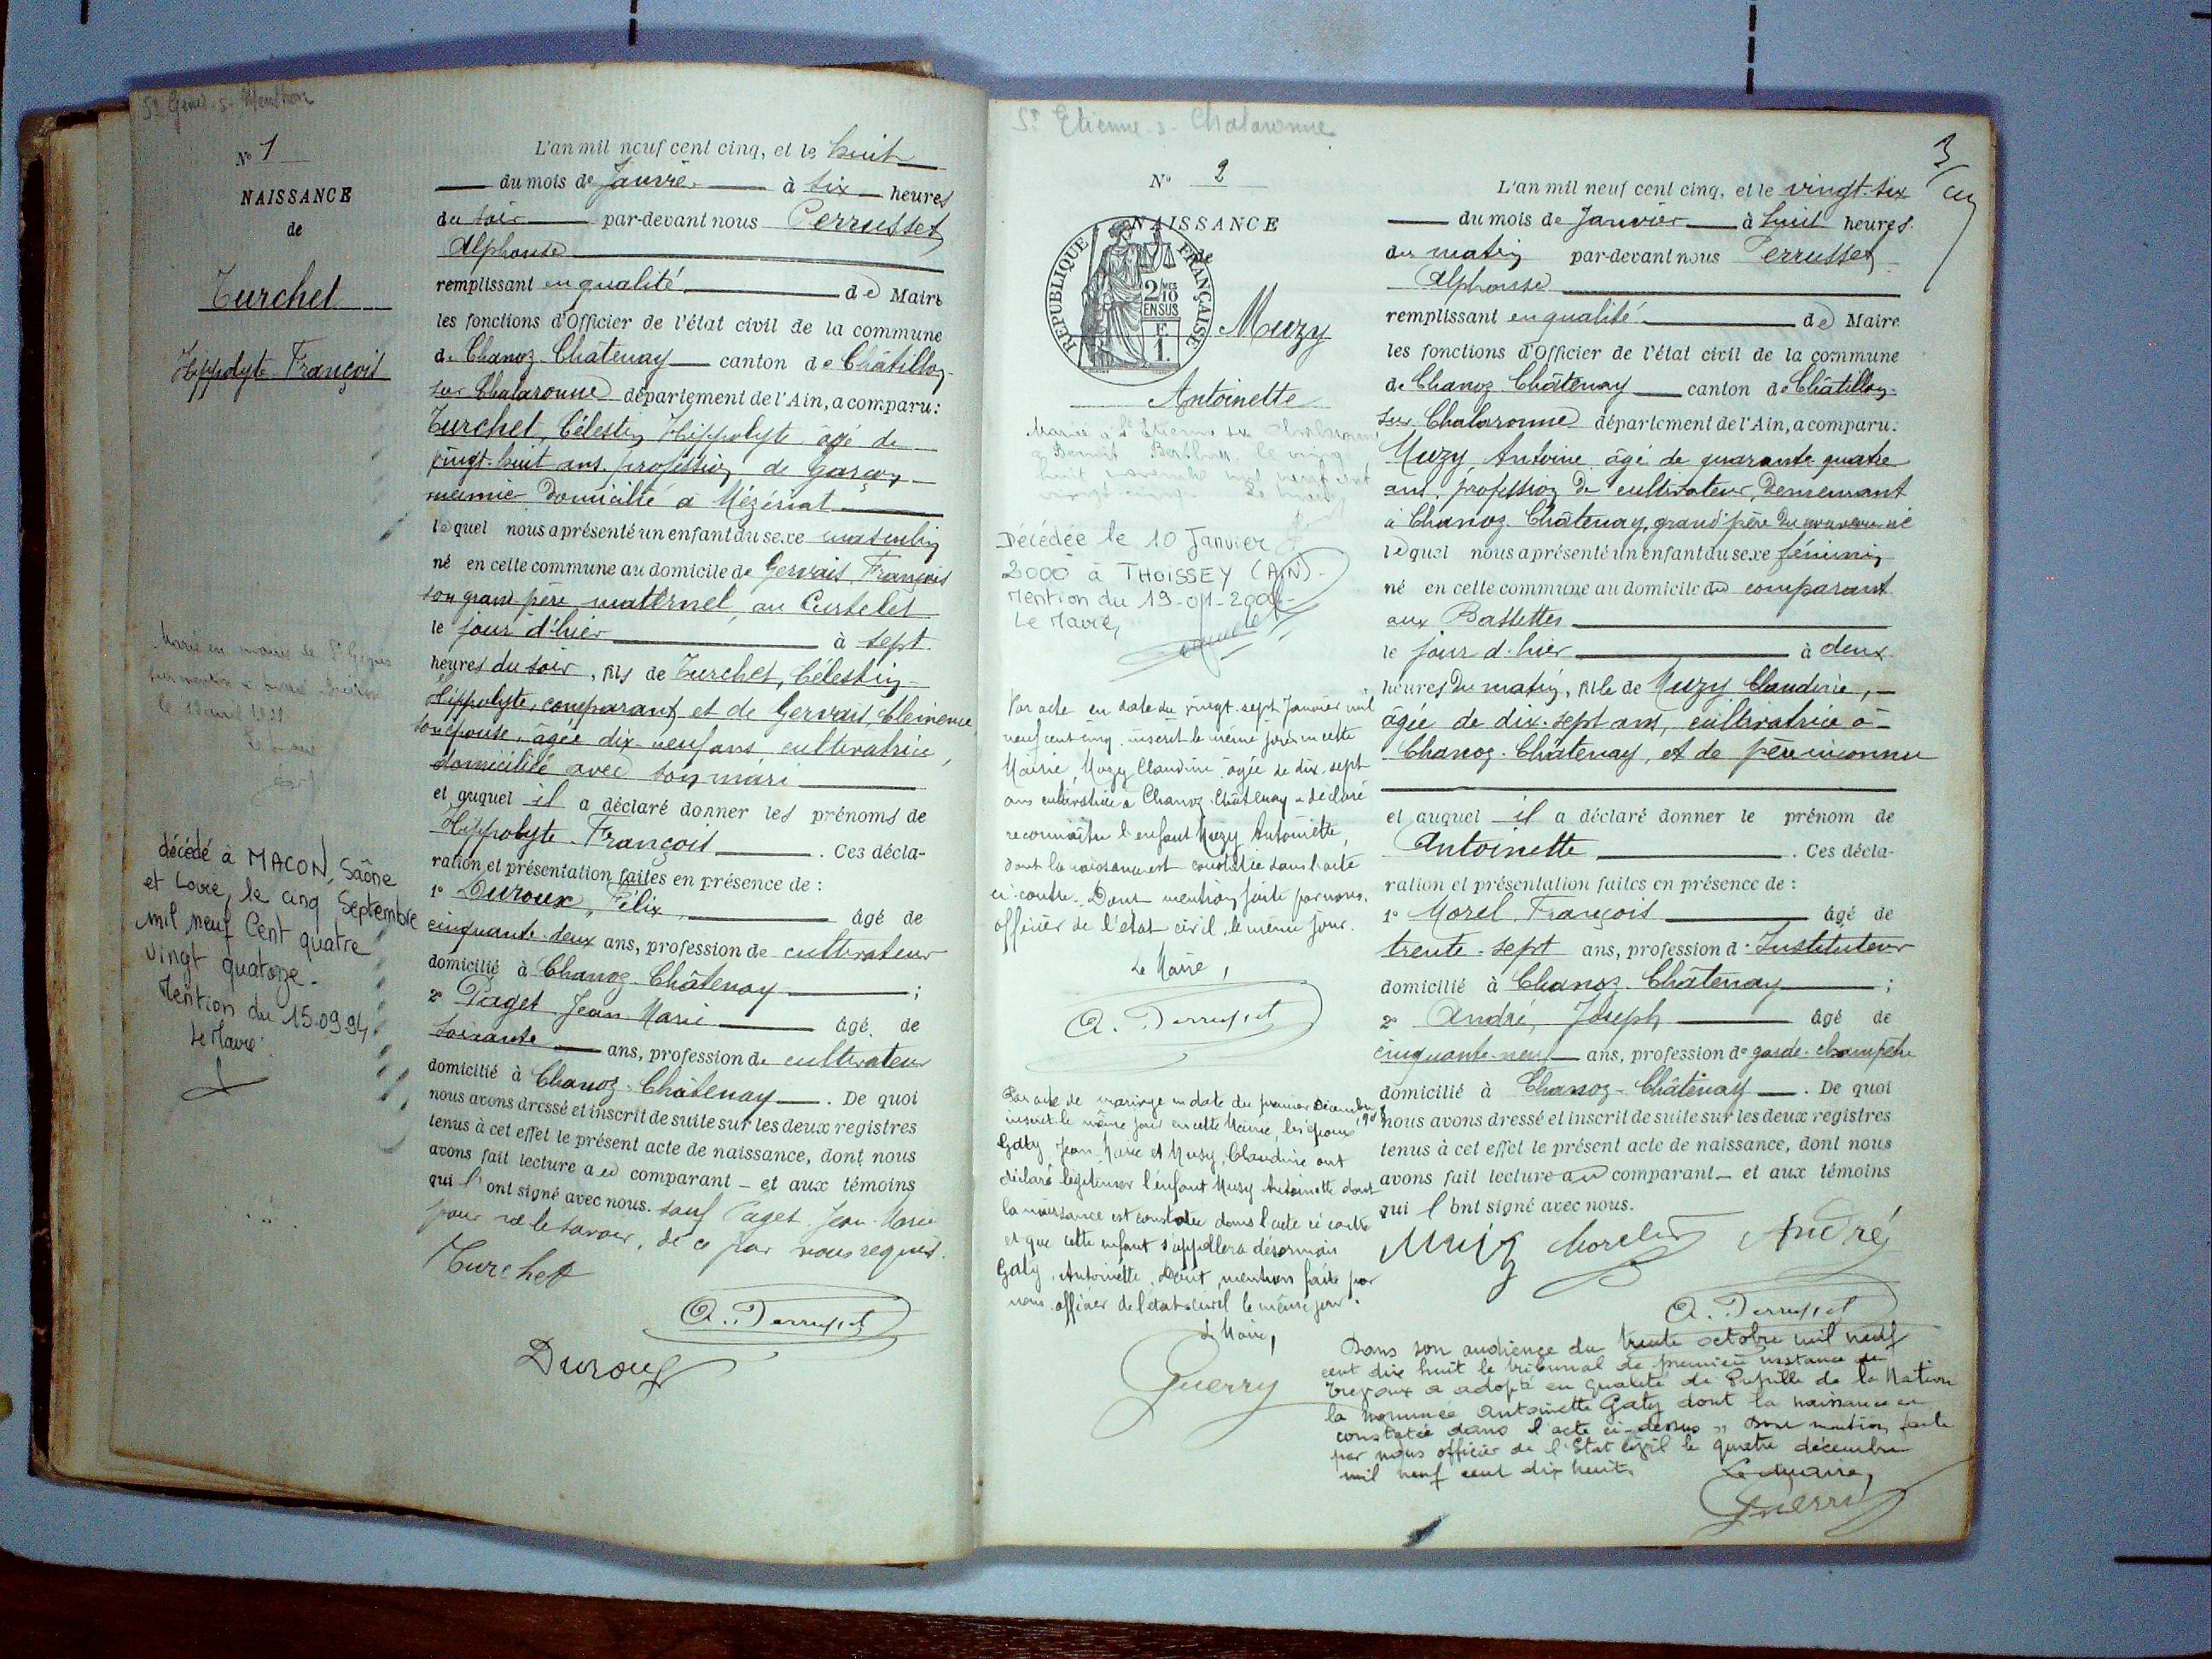 St Genis-s-Menthon
N° 1
NAISSANCE
de
Turchet
Hippolyte François
décédé à MACON, Saône
et Loire, le cinq Septembre
mil neuf Cent quatre
vingt quatorze.
Mention du 15.09.94.
Le Maire
L'an mil neuf cent cinq, et le huit
du mois de Janvier à six heures
du soir par-devant nous Perrusset
Alphonse
remplissant en qualité de Maire
les fonctions d'Officier de l'état civil de la commune
de Chanoz-Châtenay canton de Châtillon-
sur Chalaronne département de l'Ain, a comparu:
Turchet, Célestin Hippolyte âgé de
vingt-huit ans, profession de garçon
meunier domicilié à Mézériat
lequel nous a présenté un enfant du sexe masculin
né en cette commune au domicile de Gervais François
son grand père maternel, au Curtelet
le jour d'hier à sept
heures du soir, fils de Turchet, Célestin-
Hippolyte, comparant, et de Gervais, Clémence
son épouse, âgée dix-neuf ans, cultivatrice,
domiciliée avec son mari
et auquel il a déclaré donner les prénoms de
Hippolyte-François . Ces décla-
ration et présentation faites en présence de :
1° Duroux, Félix, âgé de
cinquante-deux ans, profession de cultivateur
domicilié à Chanoz-Châtenay ;
2° Paget Jean-Marie âgé de
soixante ans, profession de cultivateur
domicilié à Chanoz-Châtenay . De quoi
nous avons dressé et inscrit de suite sur les deux registres
tenus à cet effet le présent acte de naissance, dont nous
avons fait lecture au comparant - et aux témoins
qui l'ont signé avec nous. sauf Paget Jean-Marie
pour ne le savoir, de ce par nous requis.
Turchet
A. Perrusset
Duroux
St Etienne-s-Chalaronne
3
N° 2
NAISSANCE
de
REPUBLIQUE FRANÇAISE
2/10 EN SUS
F. 1.
Muzy
Antoinette
Mariée à St Etienne sur Chalaronne
Décédée le 10 Janvier
2000 à THOISSEY (AIN).
Mention du 19-01-2000
Le Maire,
Par acte en date du vingt-sept Janvier mil
neuf cent cinq, inscrit le même jour en cette
Mairie, Muzy Claudine âgée de dix-sept
ans cultivatrice à Chanoz-Châtenay a déclaré
reconnaître l'enfant Muzy Antoinette,
dont la naissance est constatée dans l'acte
ci-contre. Dont mention faite par nous,
officier de l'état civil, le même jour.
Le Maire,
A. Perrusset
Par acte de mariage en date du premier Décembre
inscrit le même jour en cette Mairie, les époux
Gaty Jean-Marie et Muzy, Claudine ont
déclaré légitimer l'enfant Muzy Antoinette dont
la naissance est constatée dans l'acte ci contre
et que cette enfant s'appellera désormais
Gaty, Antoinette. Dont mention faite par
nous officier de l'état-civil le même jour.
Le Maire,
Guerry
L'an mil neuf cent cinq, et le vingt-six
du mois de Janvier à huit heures
du matin par-devant nous Perrusset
Alphonse
remplissant en qualité de Maire
les fonctions d'Officier de l'état civil de la commune
de Chanoz-Châtenay canton de Châtillon-
sur Chalaronne département de l'Ain, a comparu:
Muzy, Antoine âgé de quarante-quatre
ans, profession de cultivateur, demeurant
à Chanoz-Châtenay, grand'père du nouveau-né
lequel nous a présenté un enfant du sexe féminin
né en cette commune au domicile du comparant
aux Bassettes
le jour d'hier à deux
heures du matin, fille de Muzy Claudine,
âgée de dix-sept ans, cultivatrice à
Chanoz-Châtenay, et de père inconnu
et auquel il a déclaré donner le prénom de
Antoinette . Ces décla-
ration et présentation faites en présence de :
1° Morel François âgé de
trente-sept ans, profession d'Instituteur
domicilié à Chanoz-Châtenay ;
2° André, Joseph âgé de
cinquante-neuf ans, profession de garde-champêtre
domicilié à Chanoz-Châtenay . De quoi
nous avons dressé et inscrit de suite sur les deux registres
tenus à cet effet le présent acte de naissance, dont nous
avons fait lecture au comparant - et aux témoins
qui l'ont signé avec nous.
Muzy Morel André
A. Perrusset
Dans son audience du trente octobre mil neuf
cent dix huit le tribunal de première instance de
Trévoux a adopté en qualité de Pupille de la Nation
la nommée Antoinette Gaty dont la naissance est
constatée dans l'acte ci-dessus. Dont mention faite
par nous officier de l'Etat civil le quatre décembre
mil neuf cent dix huit.
Le Maire,
Guerry